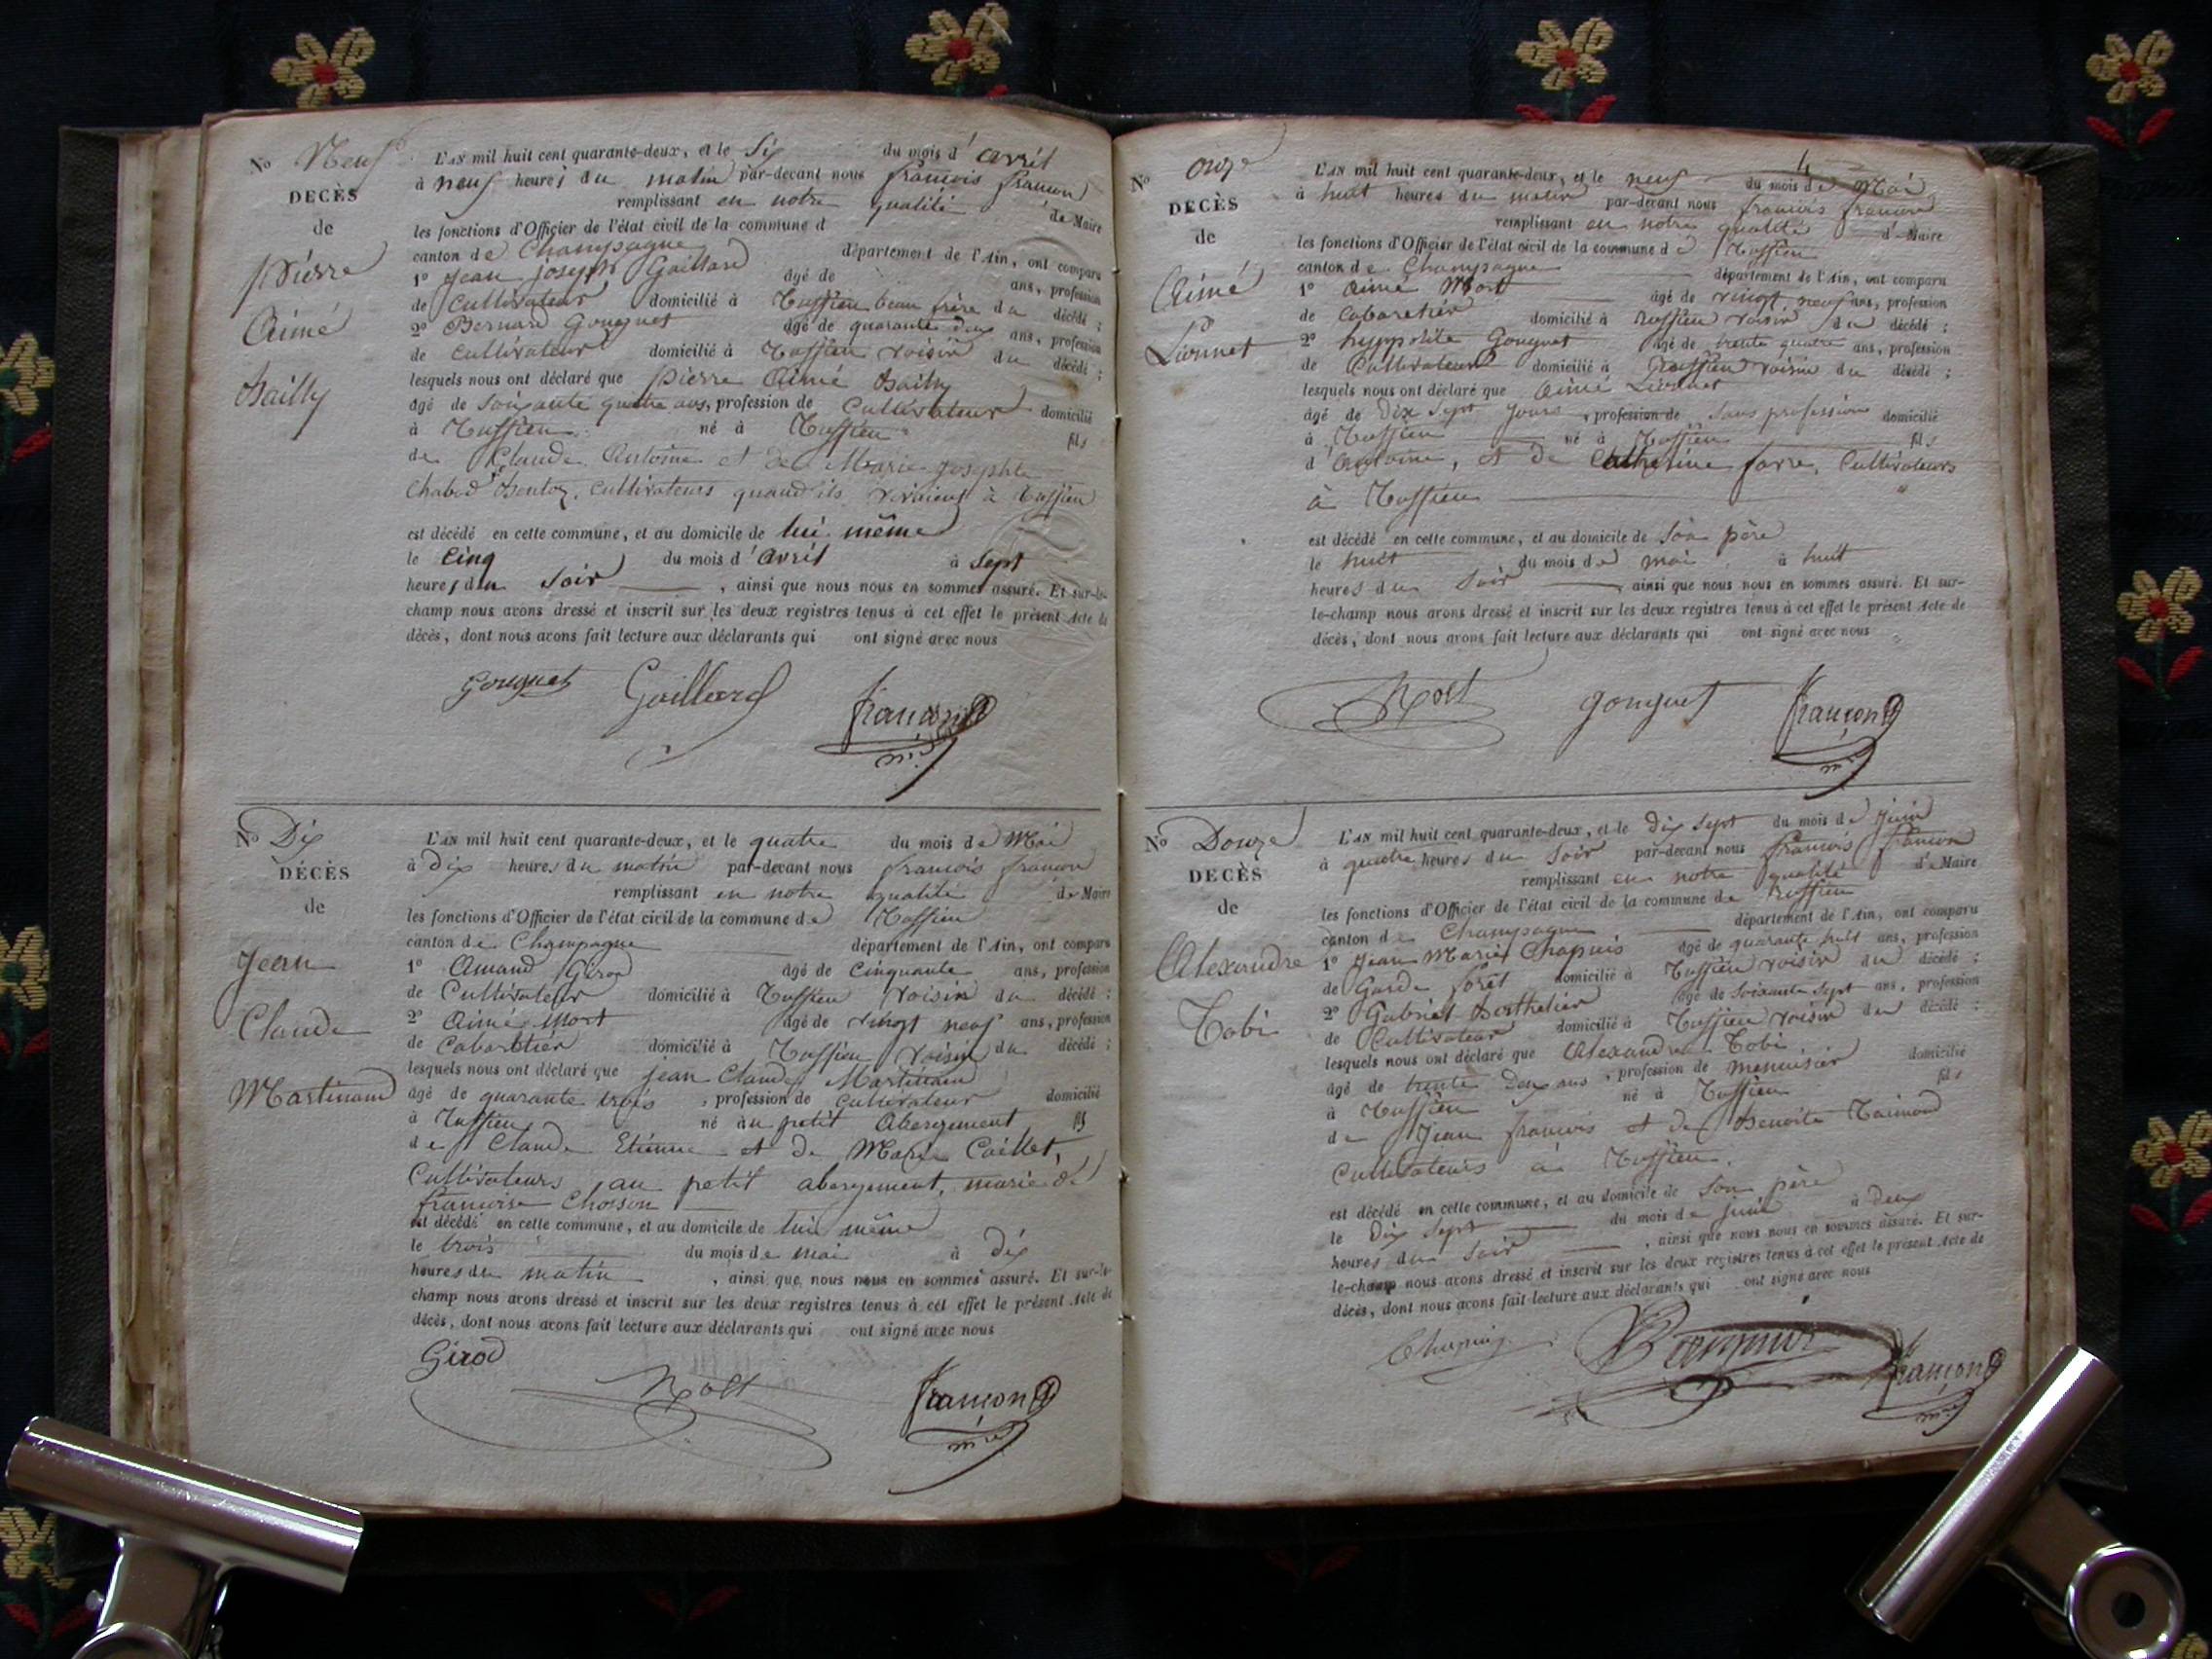 No Neuf
DECÈS
de
Pierre
Aimé
Bailly
L'AN mil huit cent quarante-deux, et le Six du mois d'avril
à neuf heures du matin par-devant nous françois françon
remplissant en notre qualité de Maire
les fonctions d'Officier de l'état civil de la commune d
canton de Champagne département de l'Ain, ont comparu
1º Jean Joseph Gaillard âgé de ans, profession
de Cultivateur domicilié à Ruffieu beau frère du décédé ;
2º Bernard Gouguet âgé de quarante deux ans, profession
de Cultivateur domicilié à Ruffieu voisin du décédé ;
lesquels nous ont déclaré que Pierre Aimé Bailly
âgé de soixante quatre ans, profession de Cultivateur domicilié
à Ruffieu né à Ruffieu fils
de Claude Antoine et de Marie Josephte
Cultivateurs quand ils vivaient à Ruffieu
est décédé en cette commune, et au domicile de lui même
le Cinq du mois d'avril à Sept
heures du soir , ainsi que nous nous en sommes assuré. Et sur-le-
champ nous avons dressé et inscrit sur les deux registres tenus à cet effet le présent Acte de
décès, dont nous avons fait lecture aux déclarants qui ont signé avec nous
Gouguet Gaillard françon
No Dix
DÉCÈS
de
Jean
Claude
Martinand
L'AN mil huit cent quarante-deux, et le quatre du mois de Mai
à dix heures du matin par-devant nous françois françon
remplissant en notre qualité de Maire
les fonctions d'Officier de l'état civil de la commune de Ruffieu
canton de Champagne département de l'Ain, ont comparu
1º Amand Girod âgé de Cinquante ans, profession
de Cultivateur domicilié à Ruffieu voisin du décédé ;
2º Aimé Mort âgé de vingt neuf ans, profession
de Cabaretier domicilié à Ruffieu voisin du décédé ;
lesquels nous ont déclaré que Jean Claude Martinand
âgé de quarante trois , profession de cultivateur domicilié
à Ruffieu né au petit Abergement fils
de Claude Etienne et de Marie Caillet,
Cultivateurs au petit abergement, marié à
françoise Chosson
est décédé en cette commune, et au domicile de lui même
le trois du mois de mai à dix
heures du matin , ainsi que nous nous en sommes assuré. Et sur-le-
champ nous avons dressé et inscrit sur les deux registres tenus à cet effet le présent Acte de
décès, dont nous avons fait lecture aux déclarants qui ont signé avec nous
Girod Mort françon
4
No onze
DÉCÈS
de
Aimé
Lionnet
L'AN mil huit cent quarante-deux, et le neuf du mois de Mai
à huit heures du matin par-devant nous françois françon
remplissant en notre qualité d Maire
les fonctions d'Officier de l'état civil de la commune de Ruffieu
canton de Champagne département de l'Ain, ont comparu
1º Aimé Mort âgé de vingt neuf ans, profession
de Cabaretier domicilié à Ruffieu voisin du décédé ;
2º hyppolite Gouguet âgé de trente quatre ans, profession
de Cultivateur domicilié à Ruffieu voisin du décédé ;
lesquels nous ont déclaré que Aimé Lionnet
âgé de Dix Sept Jours , profession de Sans profession domicilié
à Ruffieu né à Ruffieu fils
d'Antoine, et de Catherine favre, Cultivateurs
à Ruffieu
est décédé en cette commune, et au domicile de Son père
le huit du mois de mai à huit
heures du soir , ainsi que nous nous en sommes assuré. Et sur-
le-champ nous avons dressé et inscrit sur les deux registres tenus à cet effet le présent Acte de
décès, dont nous avons fait lecture aux déclarants qui ont signé avec nous
Mort gouguet françon
No Douze
DECÈS
de
Alexandre
Tobi
L'AN mil huit cent quarante-deux, et le dix Sept du mois de Juin
à quatre heures du Soir par-devant nous françois françon
remplissant en notre qualité de Maire
les fonctions d'Officier de l'état civil de la commune de Ruffieu
canton de Champagne département de l'Ain, ont comparu
1º Jean Marie Chapuis âgé de quarante huit ans, profession
de Garde forêt domicilié à Ruffieu voisin du décédé ;
2º Gabriel Berthelier âgé de soixante Sept ans, profession
de Cultivateur domicilié à Ruffieu voisin du décédé ;
lesquels nous ont déclaré que Alexandre Tobi
âgé de trente Deux ans , profession de menuisier domicilié
à Ruffieu né à Ruffieu fils
de Jean françois et de Benoite
Cultivateurs à Ruffieu.
est décédé en cette commune, et au domicile de Son père
le Dix Sept du mois de juin à Deux
heures du Soir , ainsi que nous nous en sommes assuré. Et sur-
le-champ nous avons dressé et inscrit sur les deux registres tenus à cet effet le présent Acte de
décès, dont nous avons fait lecture aux déclarants qui ont signé avec nous
Chapuis françon